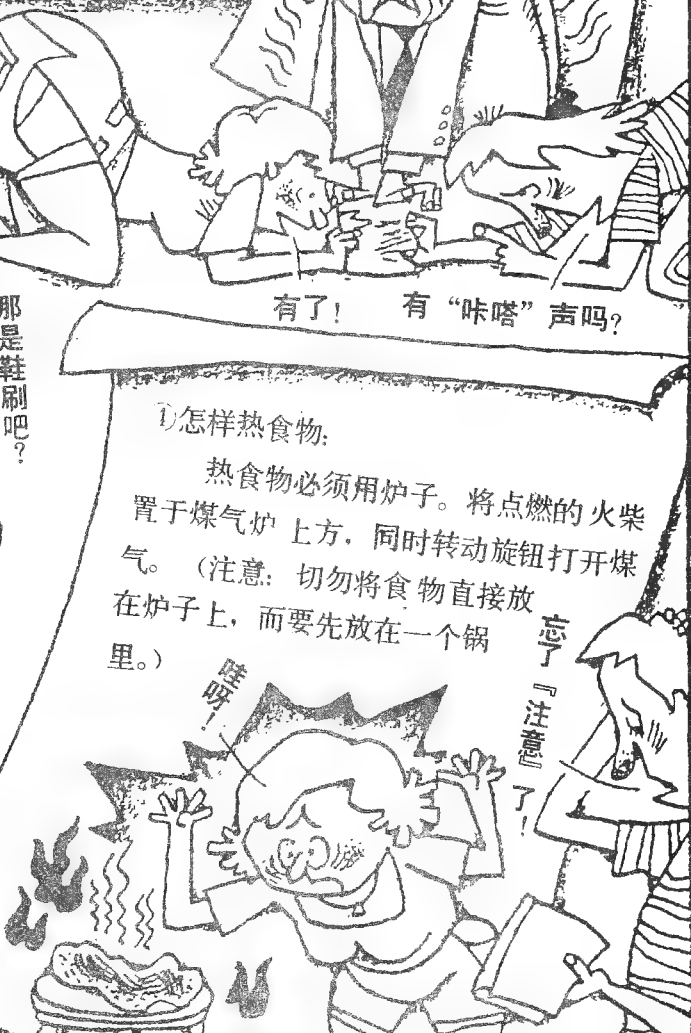 有了！
有“咔嗒”声吗？
那是鞋刷吧？
①怎样热食物：
热食物必须用炉子。将点燃的火柴
置于煤气炉上方，同时转动旋钮打开煤
气。（注意：切勿将食物直接放
在炉子上，而要先放在一个锅
里。）
哇呀！
忘了『注意』了！